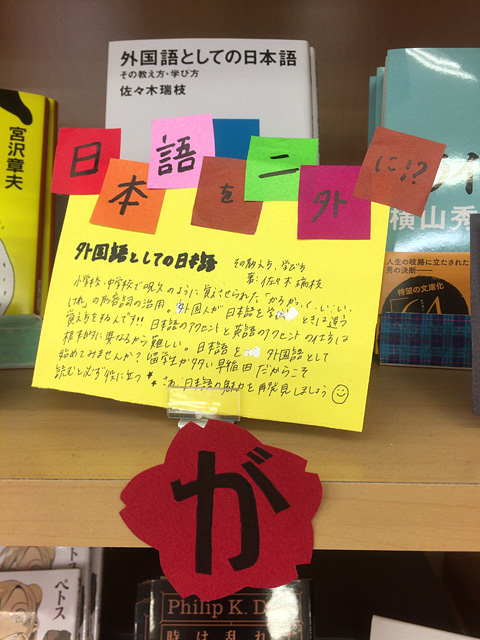 外国語としての日本語
その教え方・学び方
佐々木瑞枝
宮沢章夫
日本語を二外に!?
横山秀
人生の岐路に立たされた
男の決断――
待望の文庫化
外国語としての日本語 その教え方、学び方
著:佐々木瑞枝
小学校・中学校で呪文のように覚えさせられた"かろ、かっ、く、い、い、
けれ"の形容詞の活用。外国人が日本語を学ぶ ときは違う
覚え方をするんです!! 日本語のアクセントと英語のアクセントのイミちは
根本的に異なるから難しい。日本語を 外国語として
始めてみませんか? 留学生が多い早稲田だからこそ
読むと必ず役に立つ さあ、日本語の魅力を再発見しましょう
が
ペトス
Philip K. D
時は乱れ